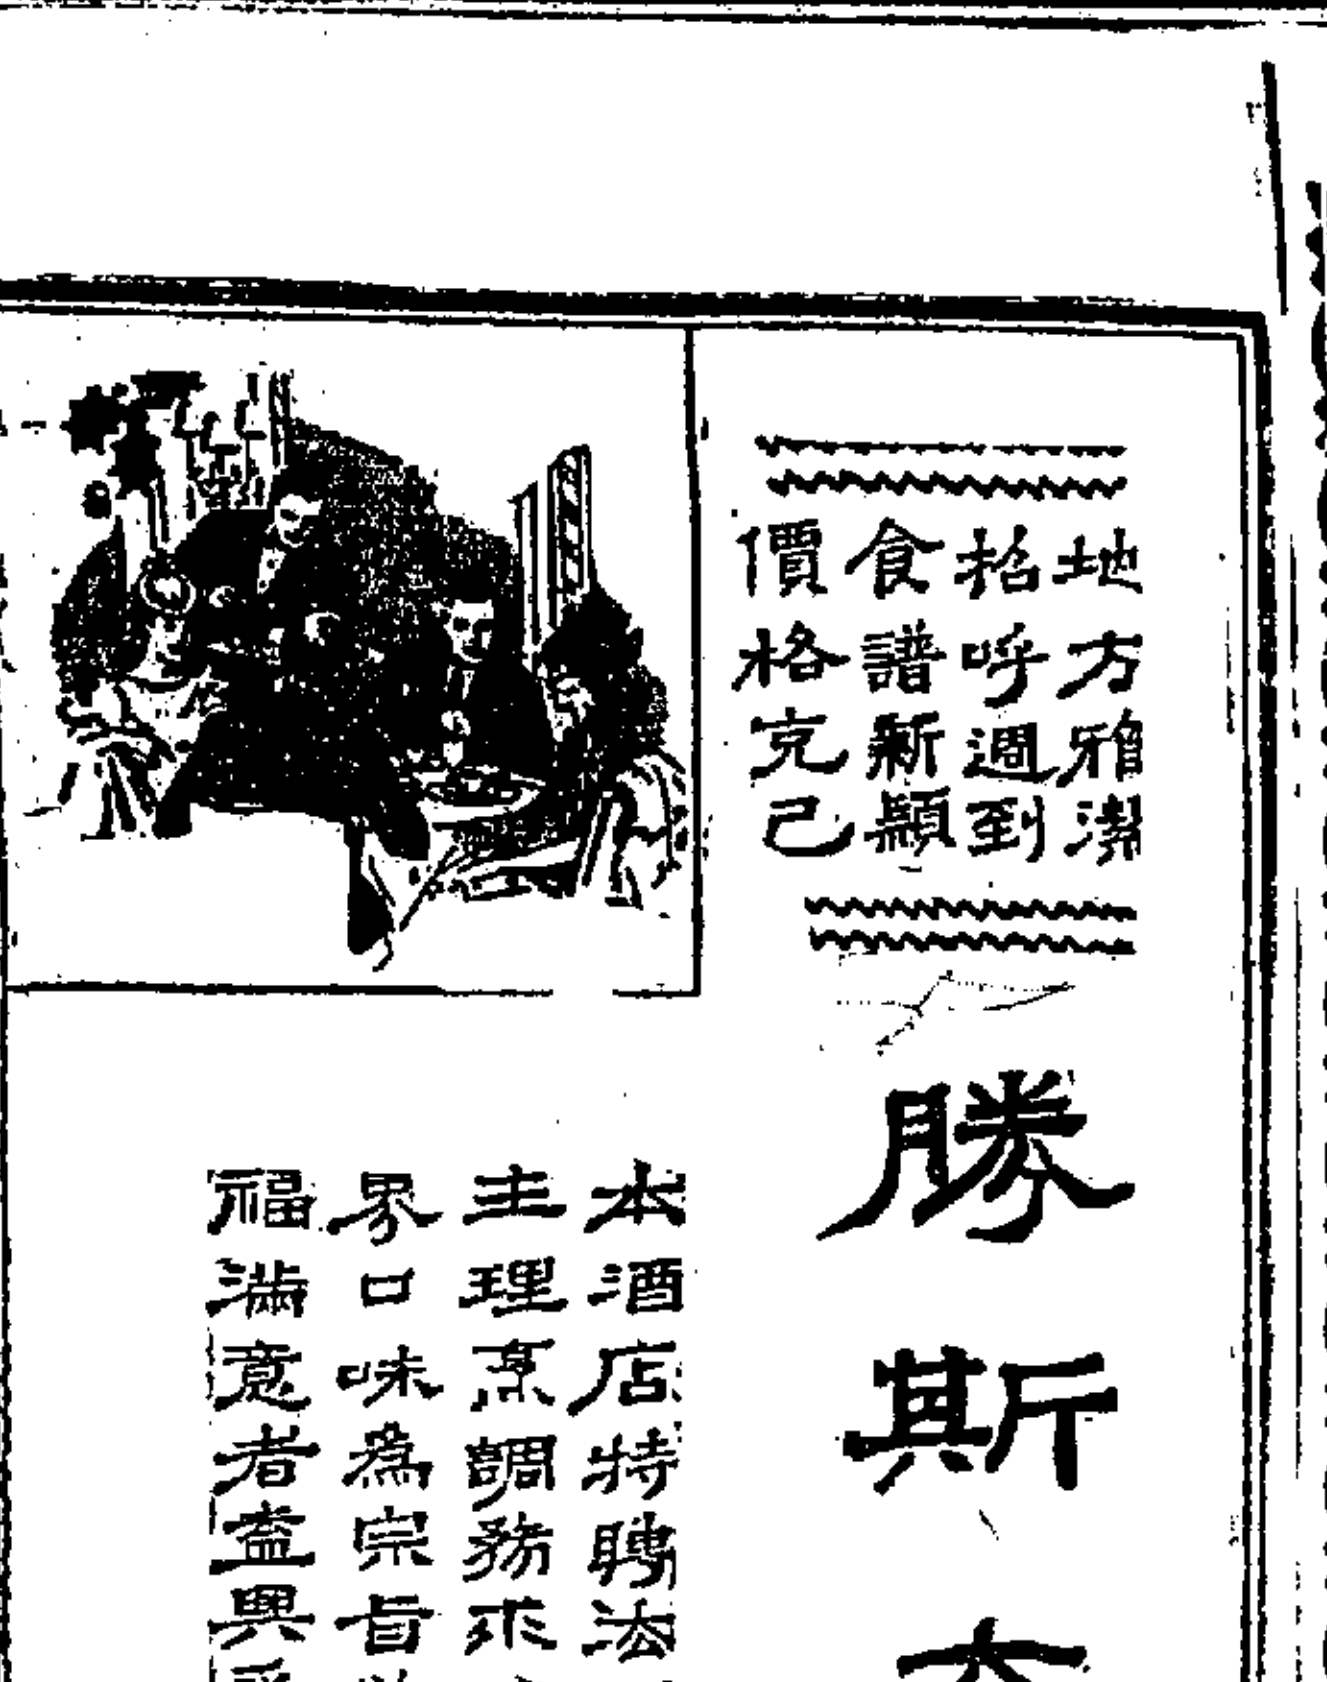 地方雅潔
招呼週到
食譜新穎
價格克己
勝斯
本酒店特聘法
主理烹調務求
界口味為宗旨
福滿意者盍興